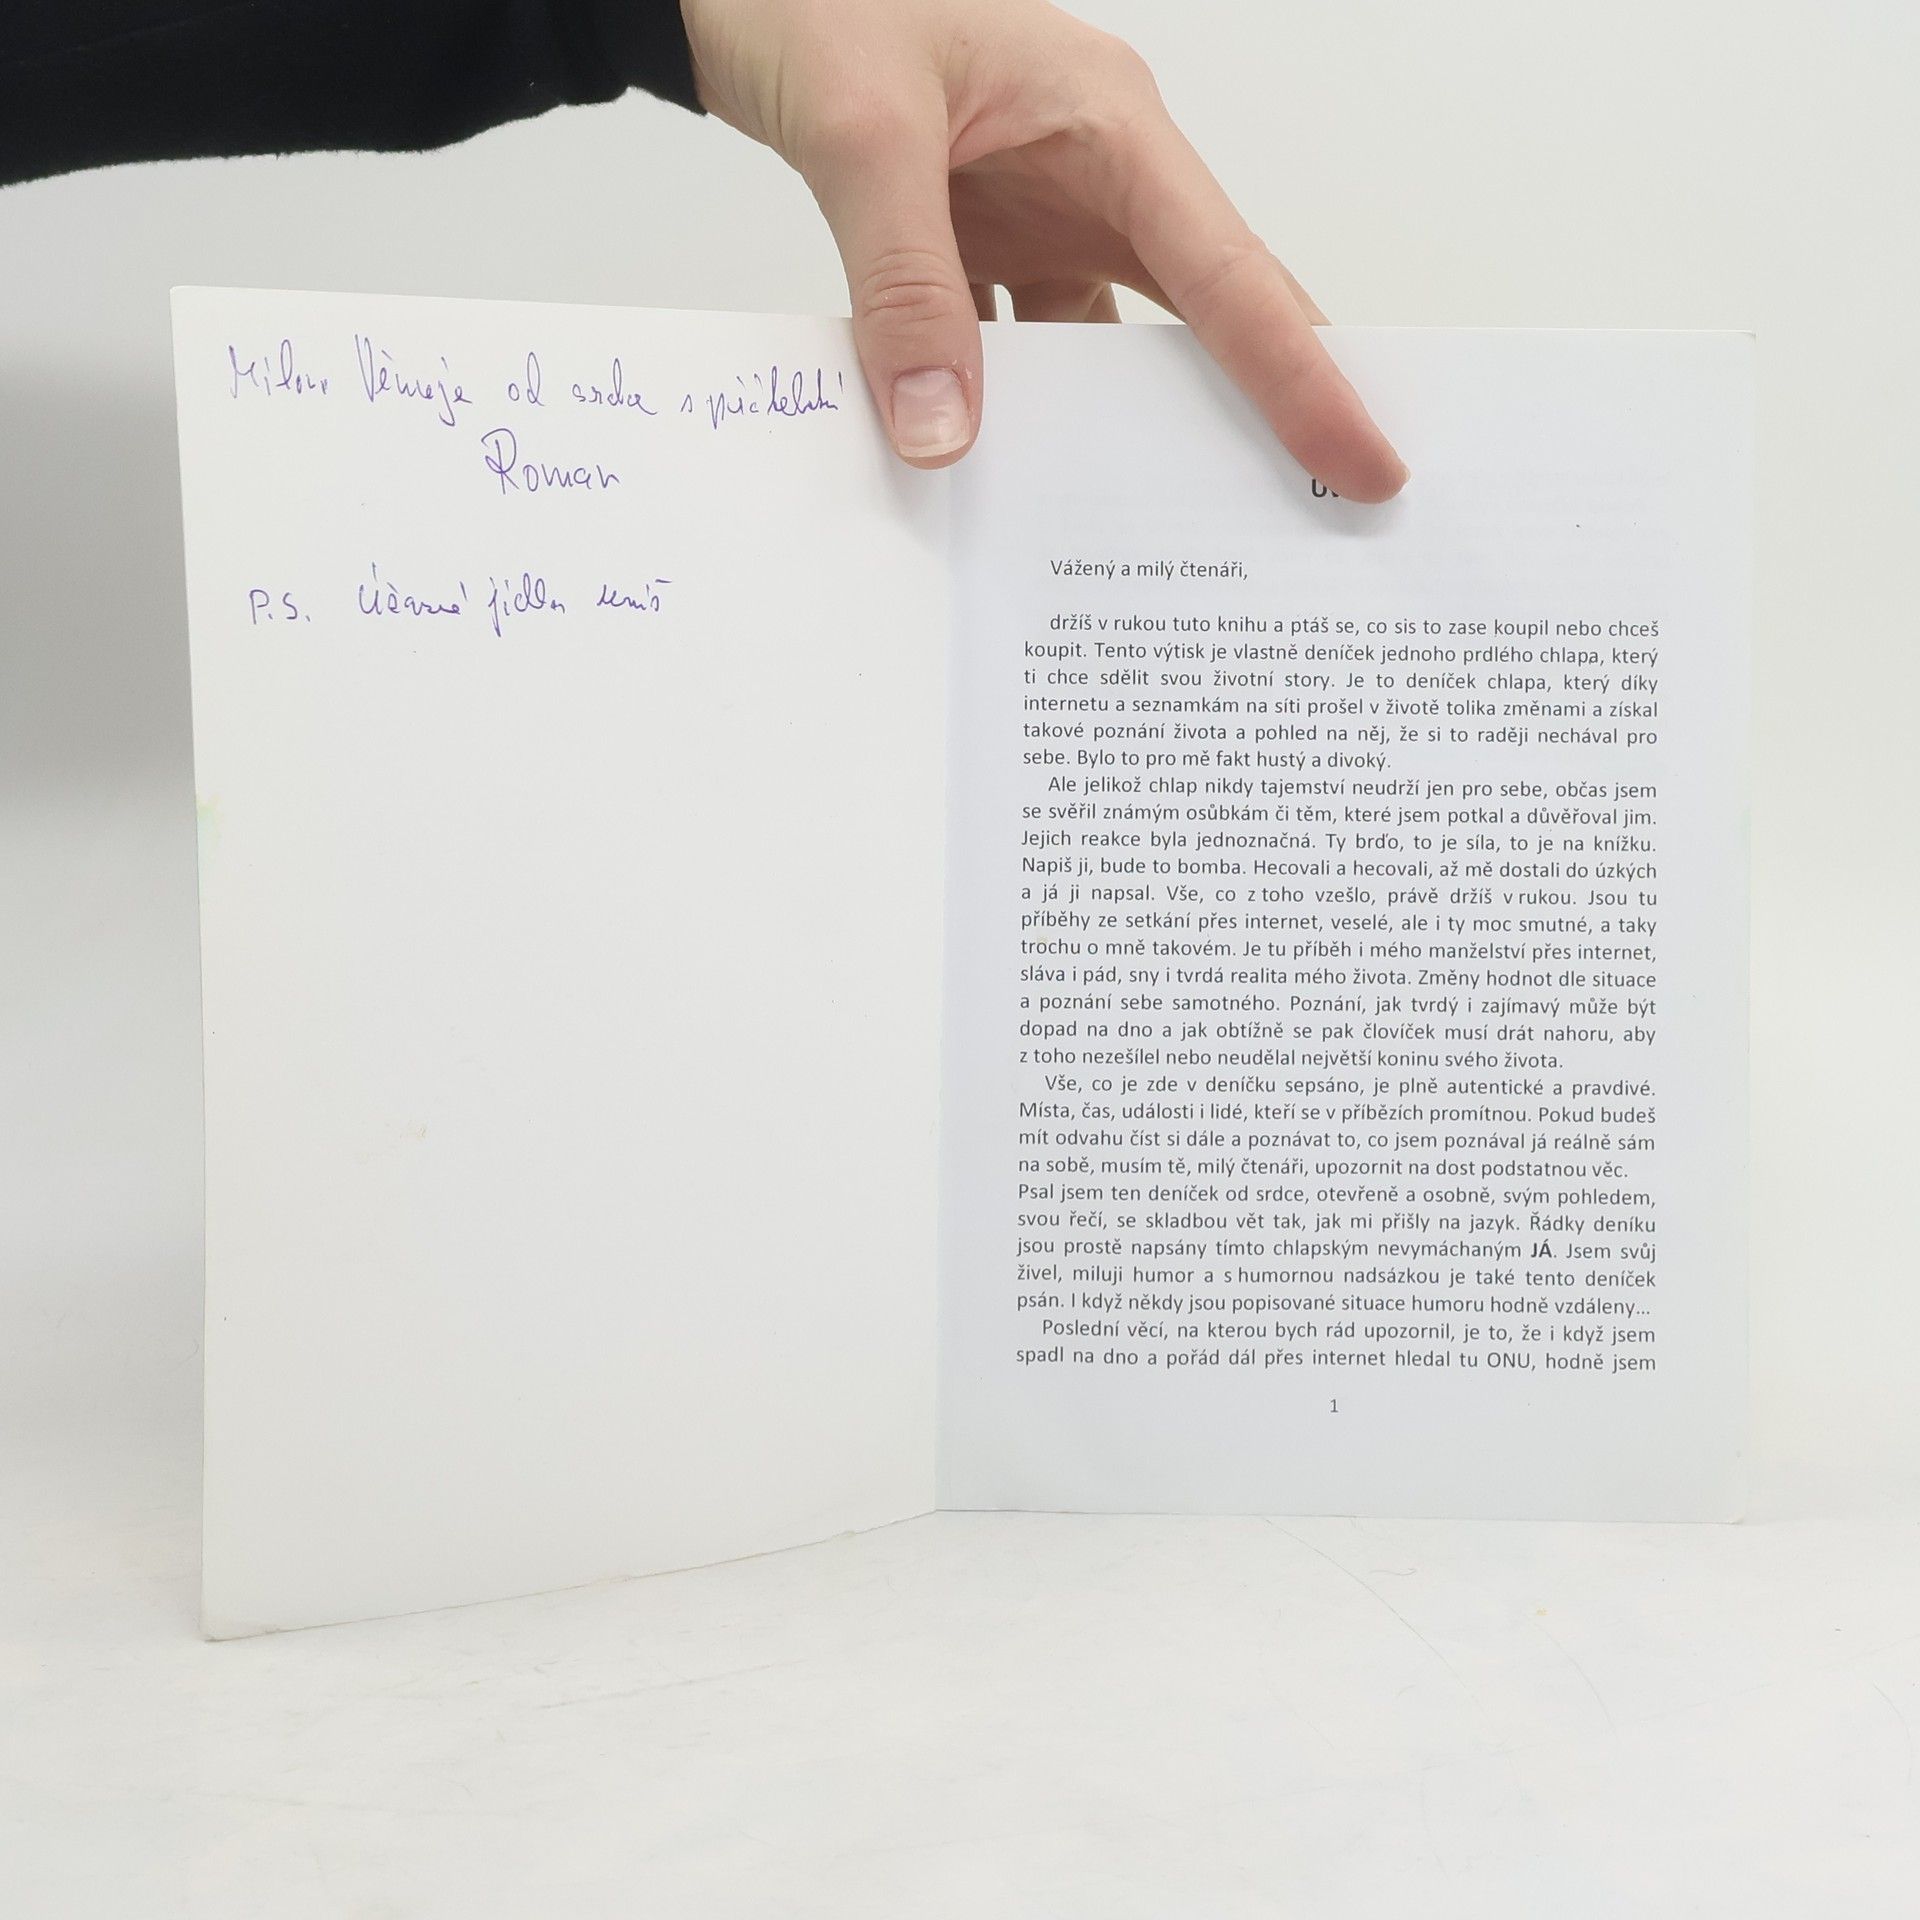 Věnuje od srdce s přátelství
Roman
P.S. Úžasné jídlo umíš
Vážený a milý čtenáři,
držíš v rukou tuto knihu a ptáš se, co sis to zase koupil nebo chceš
koupit. Tento výtisk je vlastně deníček jednoho prdlého chlapa, který
ti chce sdělit svou životní story. Je to deníček chlapa, který díky
internetu a seznamkám na síti prošel v životě tolika změnami a získal
takové poznání života a pohled na něj, že si to raději nechával pro
sebe. Bylo to pro mě fakt hustý a divoký.
Ale jelikož chlap nikdy tajemství neudrží jen pro sebe, občas jsem
se svěřil známým osůbkám či těm, které jsem potkal a důvěřoval jim.
Jejich reakce byla jednoznačná. Ty brďo, to je síla, to je na knížku.
Napiš ji, bude to bomba. Hecovali a hecovali, až mě dostali do úzkých
a já ji napsal. Vše, co z toho vzešlo, právě držíš v rukou. Jsou tu
příběhy ze setkání přes internet, veselé, ale i ty moc smutné, a taky
trochu o mně takovém. Je tu příběh i mého manželství přes internet,
sláva i pád, sny i tvrdá realita mého života. Změny hodnot dle situace
a poznání sebe samotného. Poznání, jak tvrdý i zajímavý může být
dopad na dno a jak obtížně se pak človíček musí drát nahoru, aby
z toho nezešílel nebo neudělal největší koninu svého života.
Vše, co je zde v deníčku sepsáno, je plně autentické a pravdivé.
Místa, čas, události i lidé, kteří se v příbězích promítnou. Pokud budeš
mít odvahu číst si dále a poznávat to, co jsem poznával já reálně sám
na sobě, musím tě, milý čtenáři, upozornit na dost podstatnou věc.
Psal jsem ten deníček od srdce, otevřeně a osobně, svým pohledem,
svou řečí, se skladbou vět tak, jak mi přišly na jazyk. Řádky deníku
jsou prostě napsány tímto chlapským nevymáchaným JÁ. Jsem svůj
živel, miluji humor a s humornou nadsázkou je také tento deníček
psán. I když někdy jsou popisované situace humoru hodně vzdáleny...
Poslední věcí, na kterou bych rád upozornil, je to, že i když jsem
spadl na dno a pořád dál přes internet hledal tu ONU, hodně jsem
1